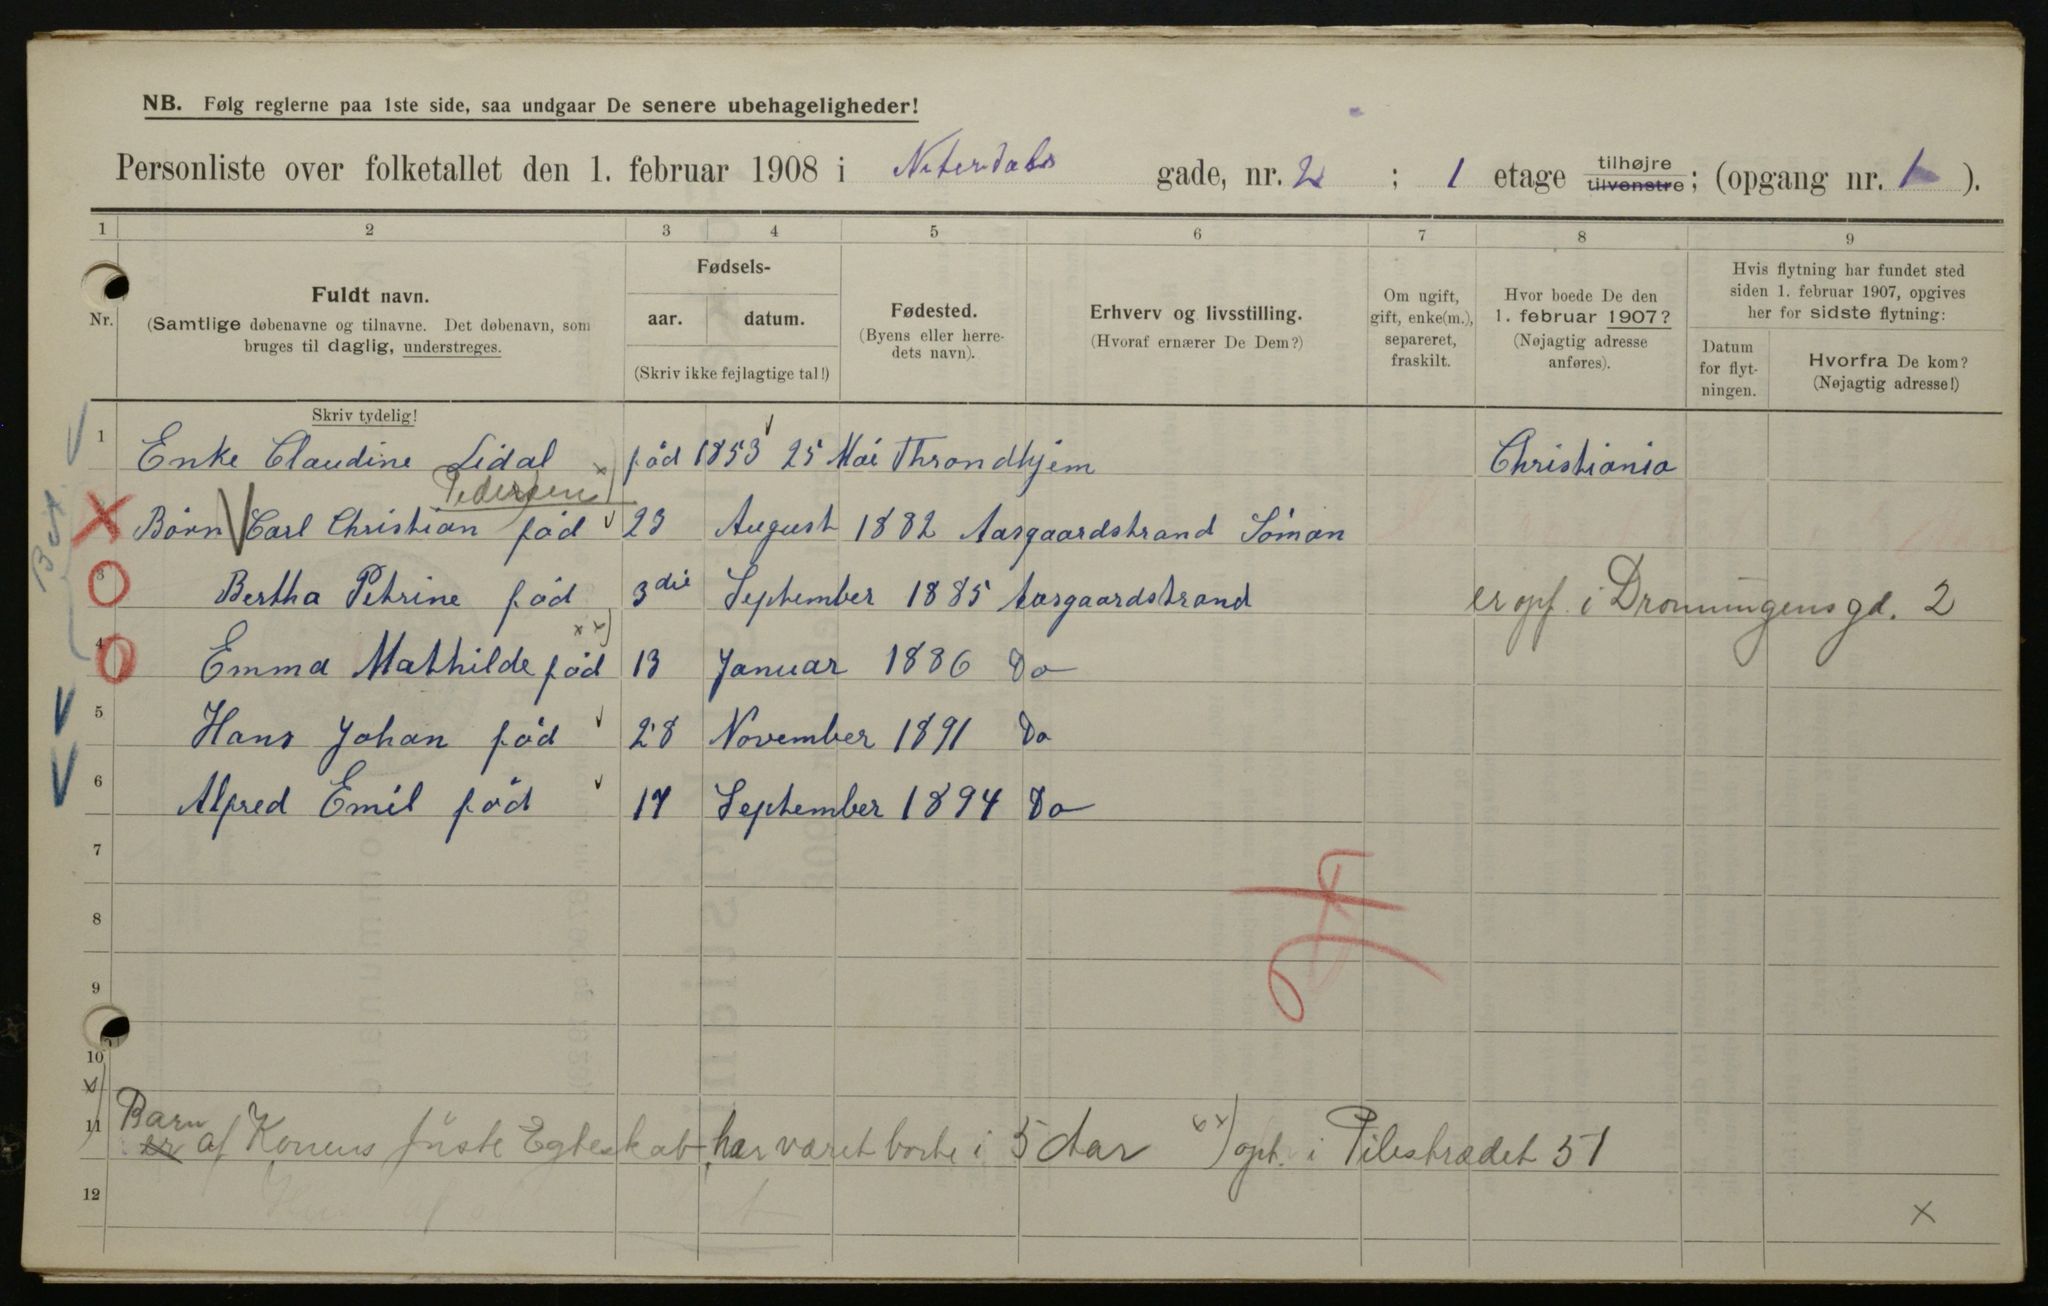 NB. Følg reglerne paa 1ste side, saa undgaar De senere ubehageligheder!
Personliste over folketallet den 1. februar 1908 i Niterdals gade, nr. 2 ; 1 etage tilhøjre tilvenstre; (opgang nr. 1 ).
1 2 3 4 5 6 7 8 9
Nr.
Fuldt navn.
(Samtlige døbenavne og tilnavne. Det døbenavn, som
bruges til daglig, understreges.
Fødsels-
aar. datum.
(Skriv ikke fejlagtige tal!)
Fødested.
(Byens eller herre-
dets navn).
Erhverv og livsstilling.
(Hvoraf ernærer De Dem?)
Om ugift,
gift, enke(m.),
separeret,
fraskilt.
Hvor boede De den
1. februar 1907?
(Nøjagtig adresse
anføres).
Hvis flytning har fundet sted
siden 1. februar 1907, opgives
her for sidste flytning:
Datum
for flyt-
ningen.
Hvorfra De kom?
(Nøjagtig adresse!)
Skriv tydelig!
1 Enke Claudine Lidal x) fød 1853 25 Mai Throndhjem Christiania
Pedersen
Børn Carl Christian fød 23 August 1882 Aasgaardstrand Söman
3 Bertha Petrine fød 3die September 1885 Aasgaardstrand er opf. i Dronningensgd. 2
xx)
4 Emma Mathilde fød 13 Januar 1886 Do
5 Hans Johan fød 28 November 1891 Do
6 Alfred Emil fød 17 September 1894 Do
7
8
9
10
x)
11 Barn
er af Konens første Egteskab, har været borte i 5 Aar xx) opt. i Pilestrædet 51
12
x